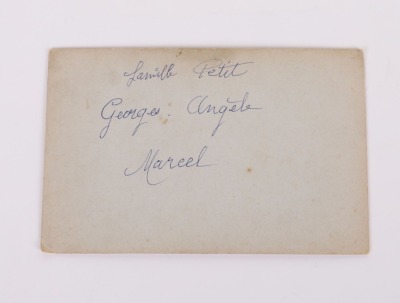 famille Petit
Georges. Angèle
Marcel